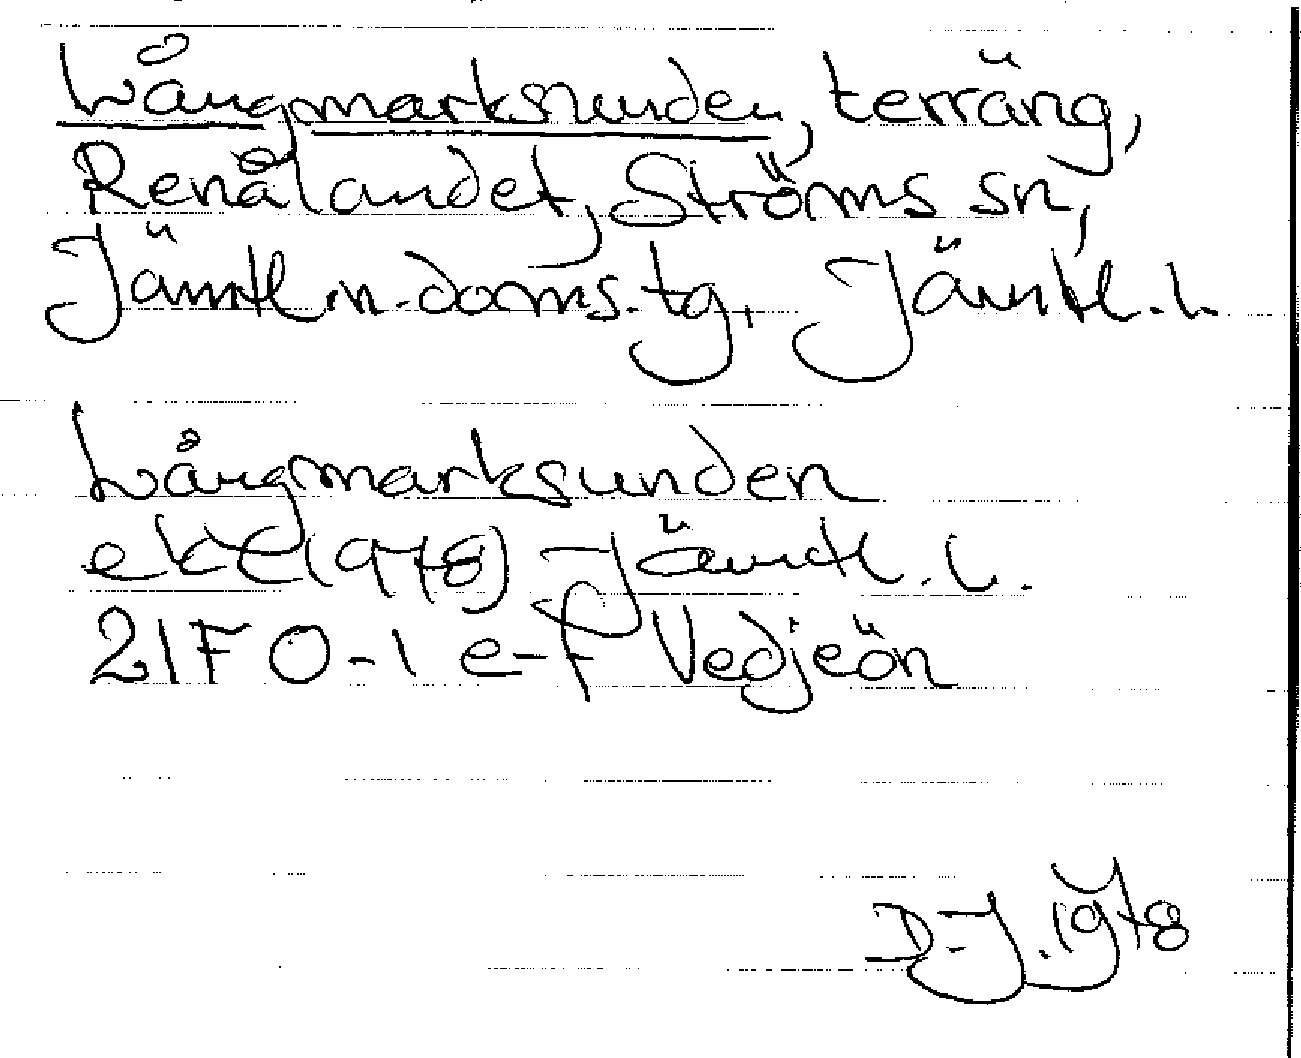 Långmarksunden, terräng,
Renålandet, Ströms sn,
Jämtl.n.doms.tg. Jämtl.l.
Långmarksunden
ek(1978) Jämtl.l.
21F 0-1 e-f Vedjeön
D-J.1978